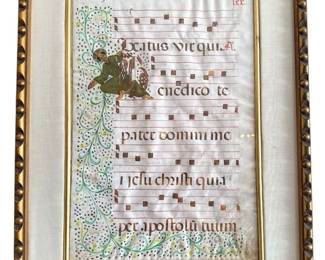 Beatus vir qui
Benedico te
pater domini me
i jesu christi quia
per apostolū tuum